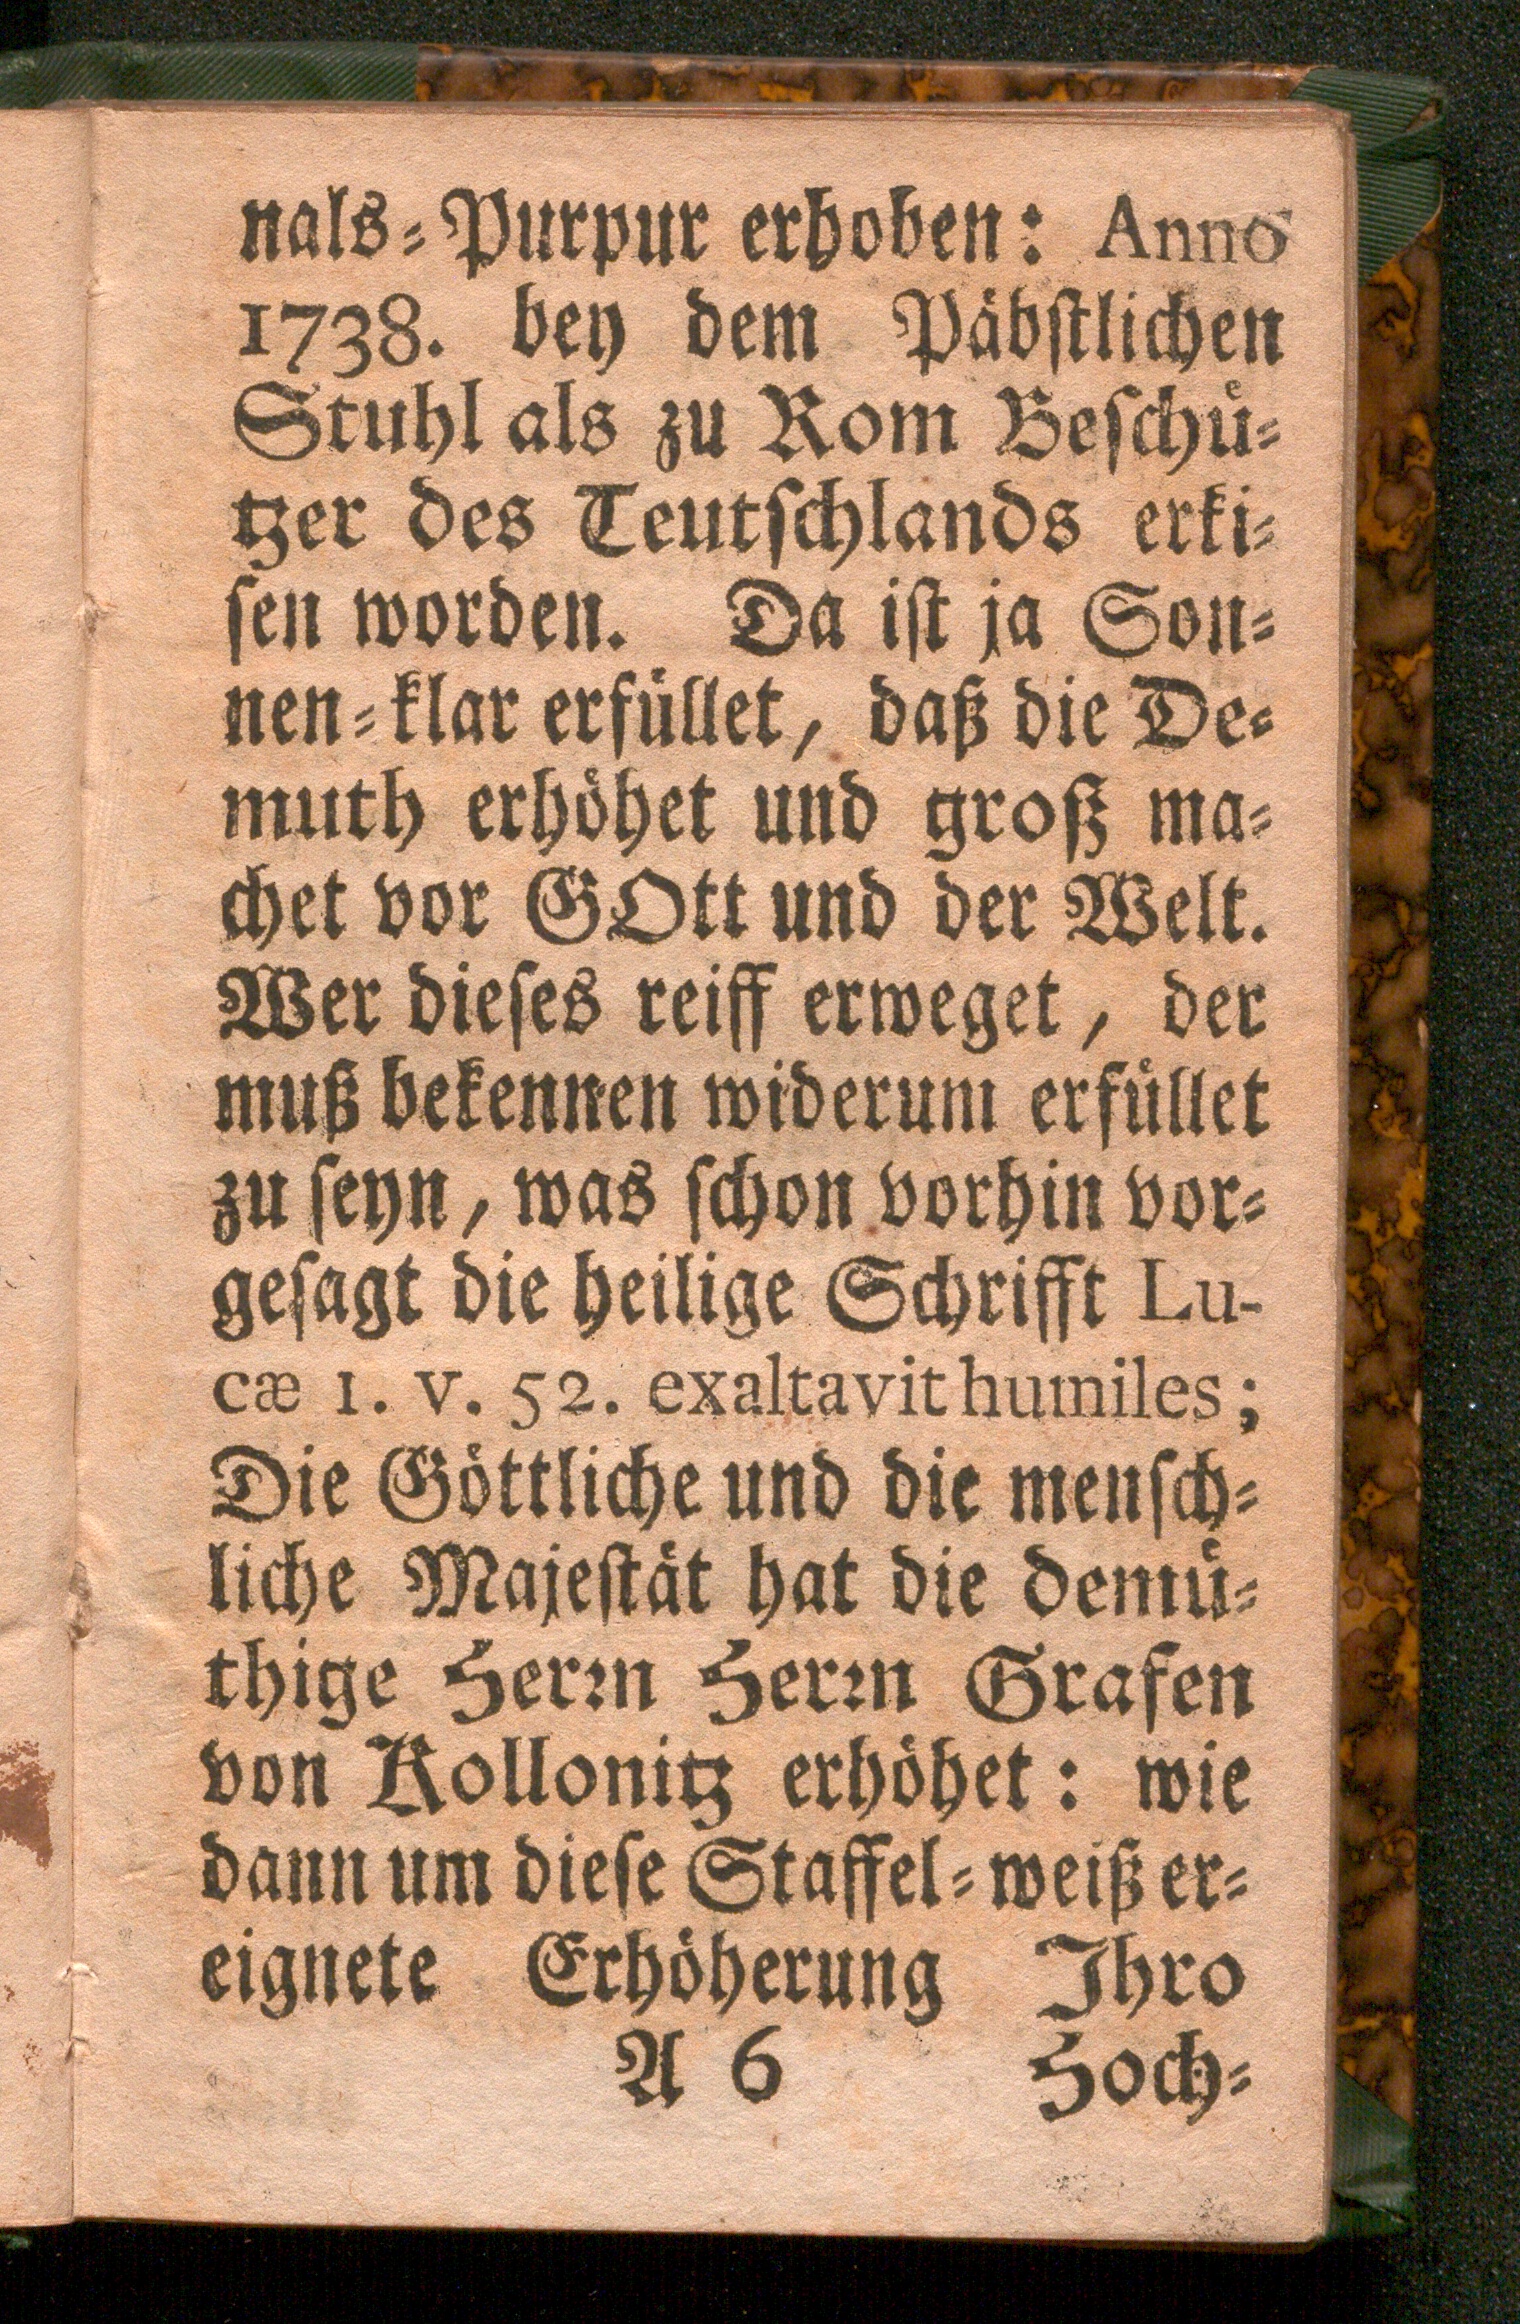 nals-Purpur erhoben: Anno
1738. bey dem Päbſtlichen
Stuhl als zu Rom Beſchü-
tzer des Teutſchlands erki-
ſen worden. Da iſt ja Son-
nen-klar erfüllet, daß die De-
muth erhöhet und groß ma-
chet vor GOtt und der Welt.
Wer dieſes reiff erweget, der
muß bekennen widerum erfüllet
zu ſeyn, was ſchon vorhin vor-
geſagt die heilige Schrifft Lu-
cæ 1. v. 52. exaltavit humiles;
Die Göttliche und die menſch-
liche Majeſtät hat die demü-
thige Herꝛn Herꝛn Grafen
von Kollonitz erhöhet: wie
dann um dieſe Staffel-weiß er-
eignete Erhöherung Ihro
A 6 Hoch-